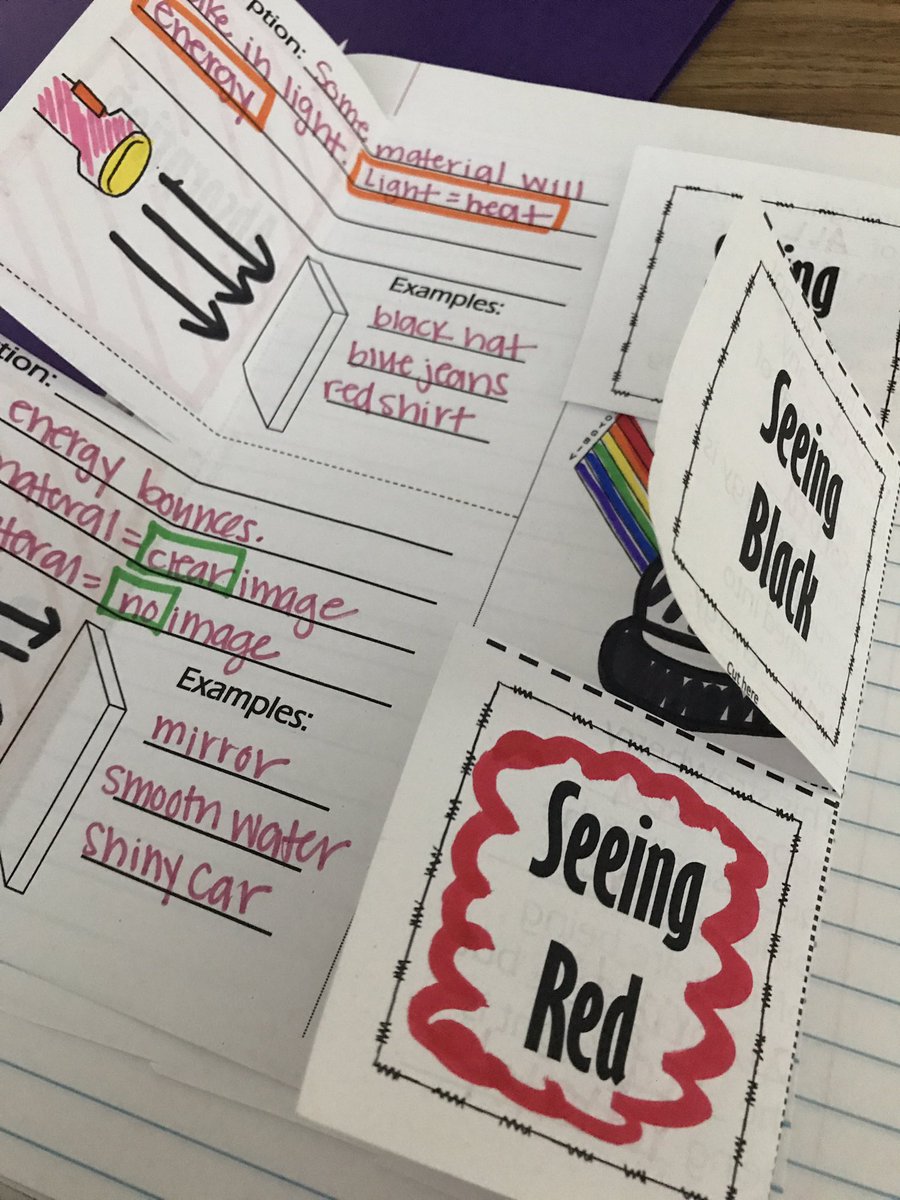 ption: Some material will
ke in light. Light = heat
energy
Examples:
black hat
blue jeans
red shirt
tion:
energy bounces.
materal = clear image
teral = no image
Examples:
mirror
smooth water
shiny car
ing
Seeing
Black
Cut here
Seeing
Red